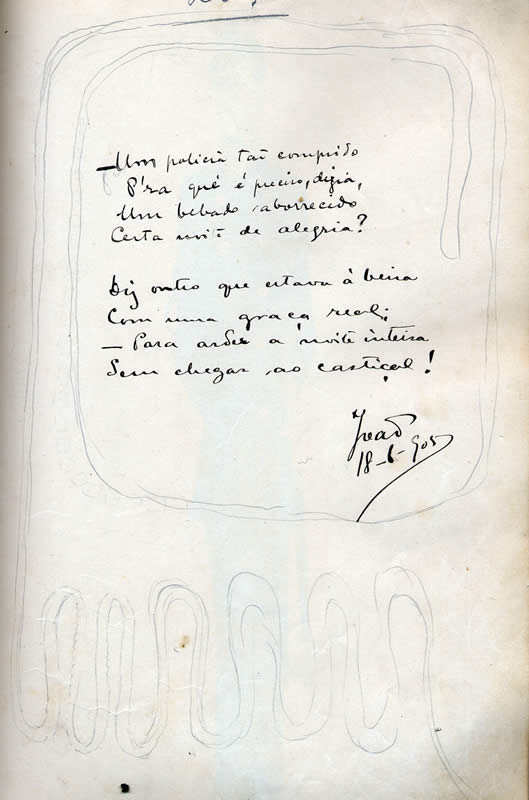 —Um policia tão comprido
P'ra quê é preciso, dizia,
Um bebado aborrecido
Certa noite de alegria?
Diz outro que estava á beira
Com uma graça real:
— Para arder a noite inteira
Sem chegar ao castiçal!
João
18-6-905